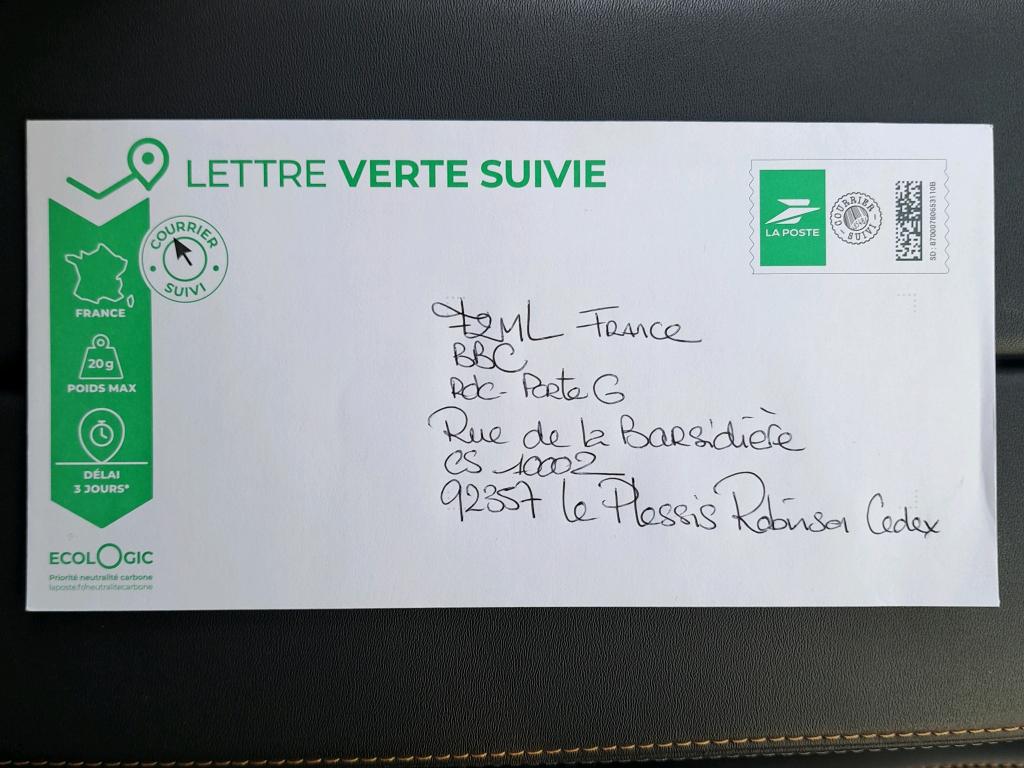 LETTRE VERTE SUIVIE
COURRIER
SUIVI
FRANCE
20g
POIDS MAX
DÉLAI
3 JOURS*
ECOLOGIC
Priorité neutralité carbone
laposte.fr/neutralitecarbone
LA POSTE
COURRIER
SUIVI
SD : 87000780653110B
FRANCE
BBC
RDC - Porte G
Rue de la Barsidière
CS 10002
92357 Le Plessis Robinson Cedex